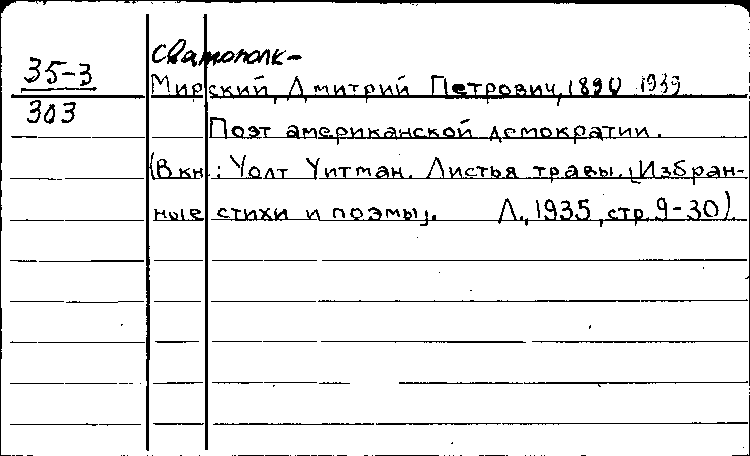 Святополк-
35-3
303
Мирский, Дмитрий Петрович, 1890 1939
Поэт американской демократии.
(В кн.: Уолт Уитман. Листья травы. [Избран-
ные стихи и поэмы]. Л., 1935, стр. 9-30)